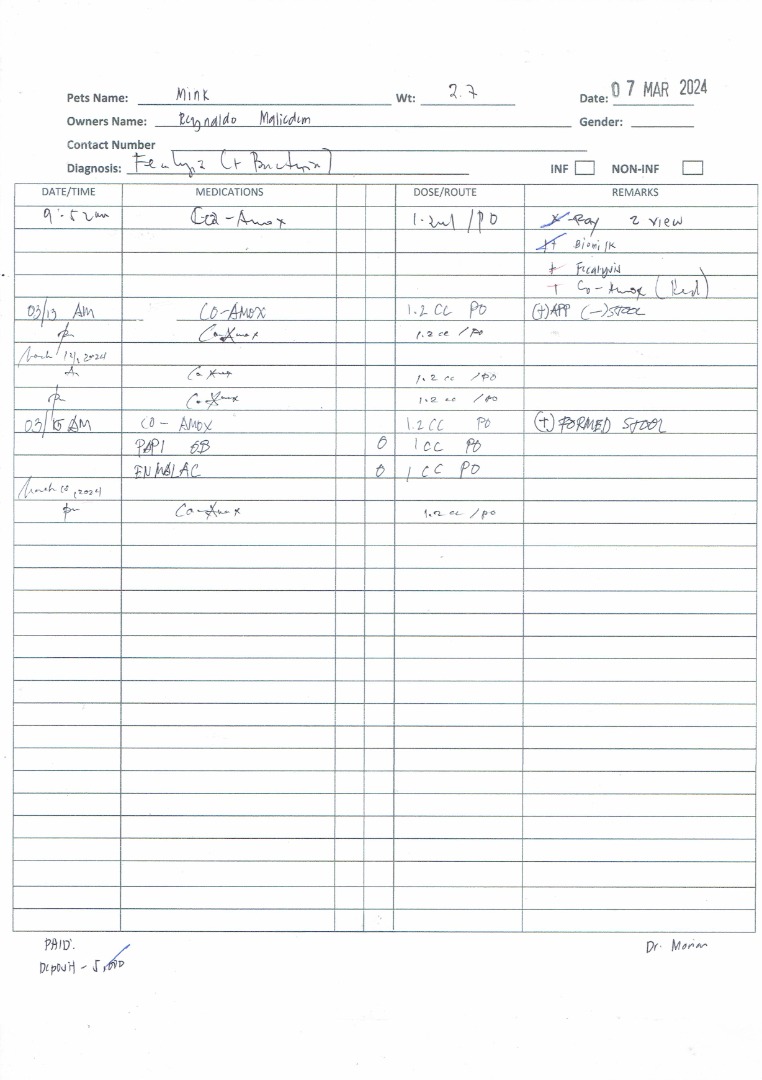 Pets Name: Mink Wt: 2.7 Date: 07 MAR 2024
Owners Name: Reynaldo Malicdem Gender:
Contact Number
Diagnosis: (+ Bacteria) INF NON-INF
DATE/TIME MEDICATIONS DOSE/ROUTE REMARKS
9:52am Co-Amox 1.2ml / PO X-Ray 2 view
+ Bionilk
+ Fecalysis
+ Co-Amox (Red)
03/13 AM CO-AMOX 1.2 CC PO (+)APP (-)STOOL
pm Co-Amox 1.2 cc / PO
March 14, 2024
Am Co Amox 1.2 cc / PO
pm Co-Amox 1.2 cc / PO
03/15 AM CO-AMOX 1.2 CC PO (+) FORMED STOOL
PAPI OB 0 1 CC PO
ENMALAC 0 1 CC PO
March 15, 2024
pm Co-Amox 1.2 cc / PO
PAID: Dr. Morian
Deposit - 5,000